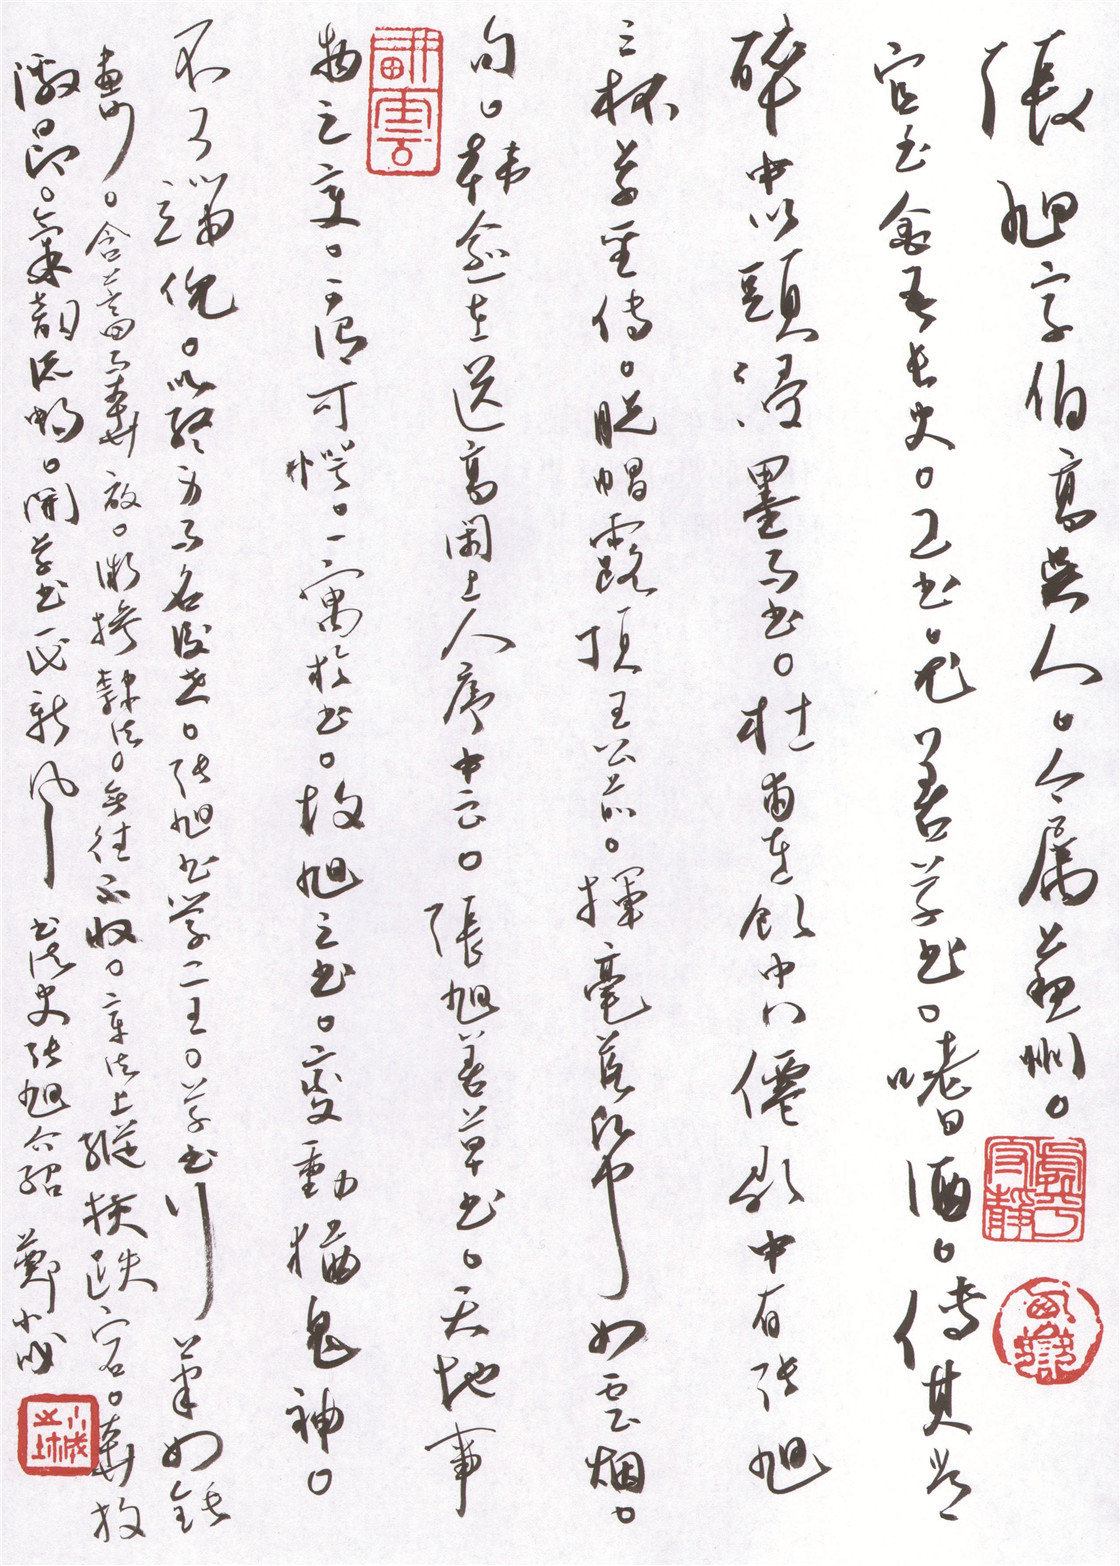 張旭字伯高吳人。今属蘇州。
官至金吾長史。工書。尤善草書。嗜酒。傳其常
醉中以頭濡墨而書。杜甫在飲中八僊歌中有張旭
三杯草聖傳。脱帽露頂王公前。揮毫落紙如雲烟。
句。韓愈在送高閑上人序中云。張旭善草書。天地事
物之變。可喜可愕。一寓於書。故旭之書。變動猶鬼神。
不可端倪。以終其身而名後世。张旭书学二王。草书行筆如錐
畫沙。含蓄而奔放。漸換隸法。無往不收。章法上縱横跌宕。奔放
激昂。氣韻流暢。開草书一代新風 书法史张旭介紹 鄭小成
耕雲